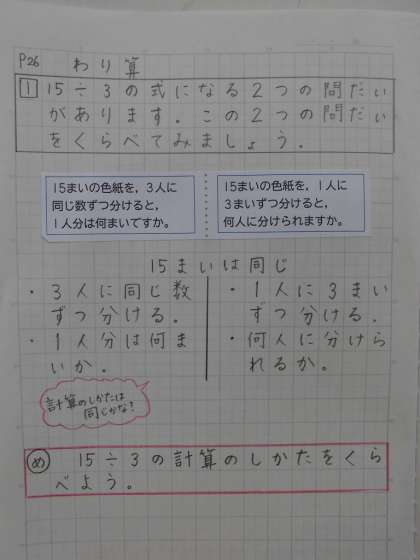 P26 わり算
1 15÷3の式になる2つの問だい
があります。この2つの問だい
をくらべてみましょう。
15まいの色紙を，3人に
同じ数ずつ分けると，
1人分は何まいですか。
15まいの色紙を，1人に
3まいずつ分けると，
何人に分けられますか。
15まいは同じ
・3人に同じ数
ずつ分ける。
・1人分は何ま
いか。
・1人に3まい
ずつ分ける。
・何人に分けら
れるか。
計算のしかたは
同じかな？
め 15÷3の計算のしかたをくら
べよう。